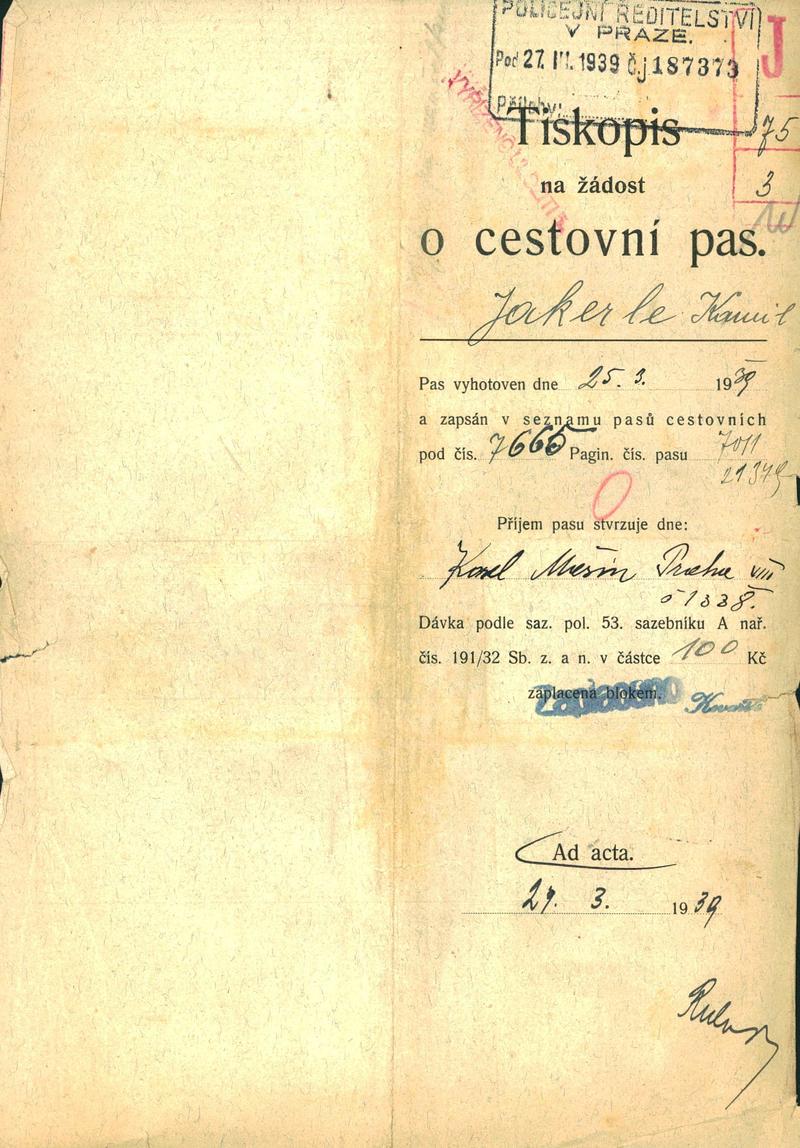 POLICEJNÍ ŘEDITELSTVÍ
V PRAZE.
Pod 27. III. 1939 čj 187373
Přílohy:
J
75
3
Tiskopis
na žádost
o cestovní pas.
Jakerle Kamil
Pas vyhotoven dne 25. 3. 1939
a zapsán v seznamu pasů cestovních
pod čís. 7665 Pagin. čís. pasu 7011
Příjem pasu stvrzuje dne:
Karel Praha VIII
Dávka podle saz. pol. 53. sazebníku A nař.
čís. 191/32 Sb. z. a n. v částce 100 Kč
zaplacena blokem.
Ad acta.
27. 3. 1939